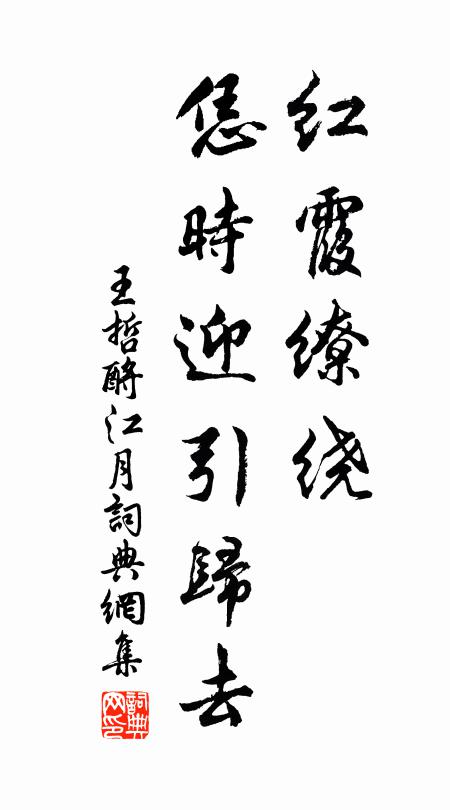 红霞缭绕
恁時迎引歸去
王哲酹江月詞典網集
詞典网印